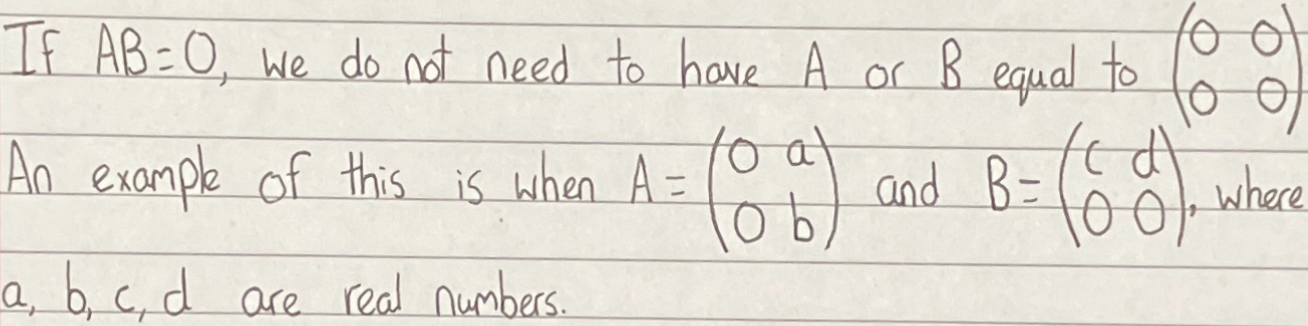 If AB=0, we do not need to have A or B equal to (0 0; 0 0)
An example of this is when A = (0 a; 0 b) and B = (c d; 0 0), where
a, b, c, d are real numbers.